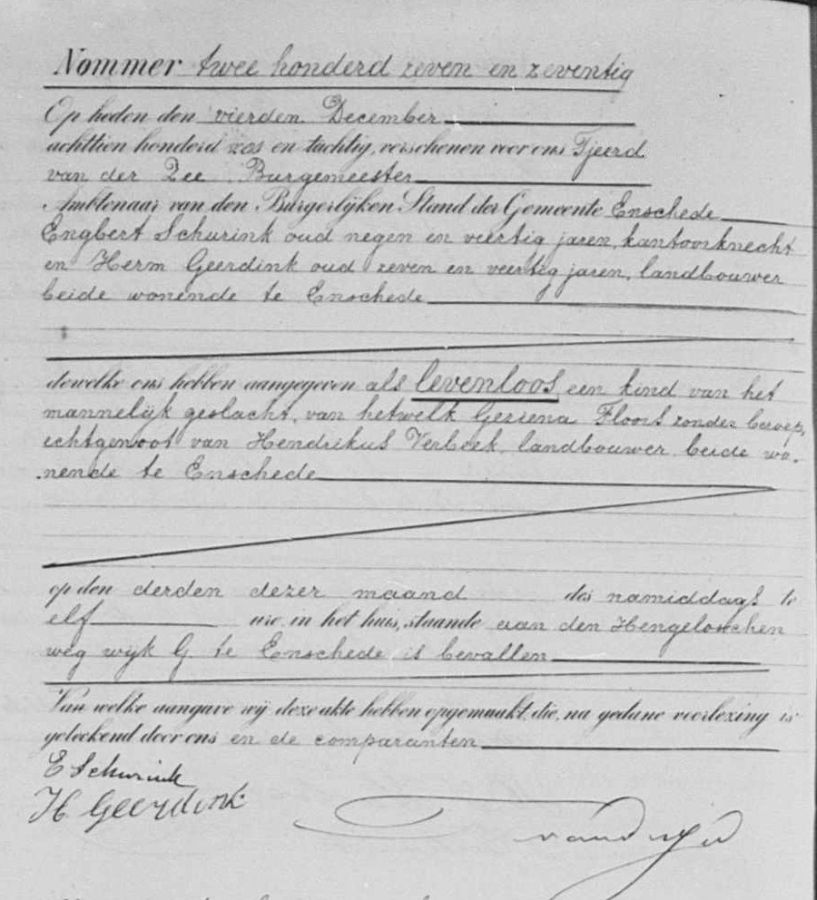 Nommer twee honderd zeven en zeventig
Op heden den vierden December
achttien honderd zes en tachtig, verschenen voor ons Tjeerd
van der Zee, Burgemeester
Ambtenaar van den Burgerlijken Stand der Gemeente Enschede
Engbert Schurink oud negen en veertig jaren, kantoorknecht
en Herm Geerdink oud zeven en veertig jaren, landbouwer
beide wonende te Enschede
dewelke ons hebben aangegeven als levenloos een kind van het
mannelijk geslacht, van hetwelk Geziena Floors zonder beroep,
echtgenoot van Hendrikus Verbeek, landbouwer, beide wo-
nende te Enschede
op den derden dezer maand des namiddags te
elf ure, in het huis, staande aan den Hengeloschen
weg wijk G te Enschede is bevallen
Van welke aangave wij deze akte hebben opgemaakt, die, na gedane voorlezing is
geteekend door ons en de comparanten
E Schurink
H Geerdink